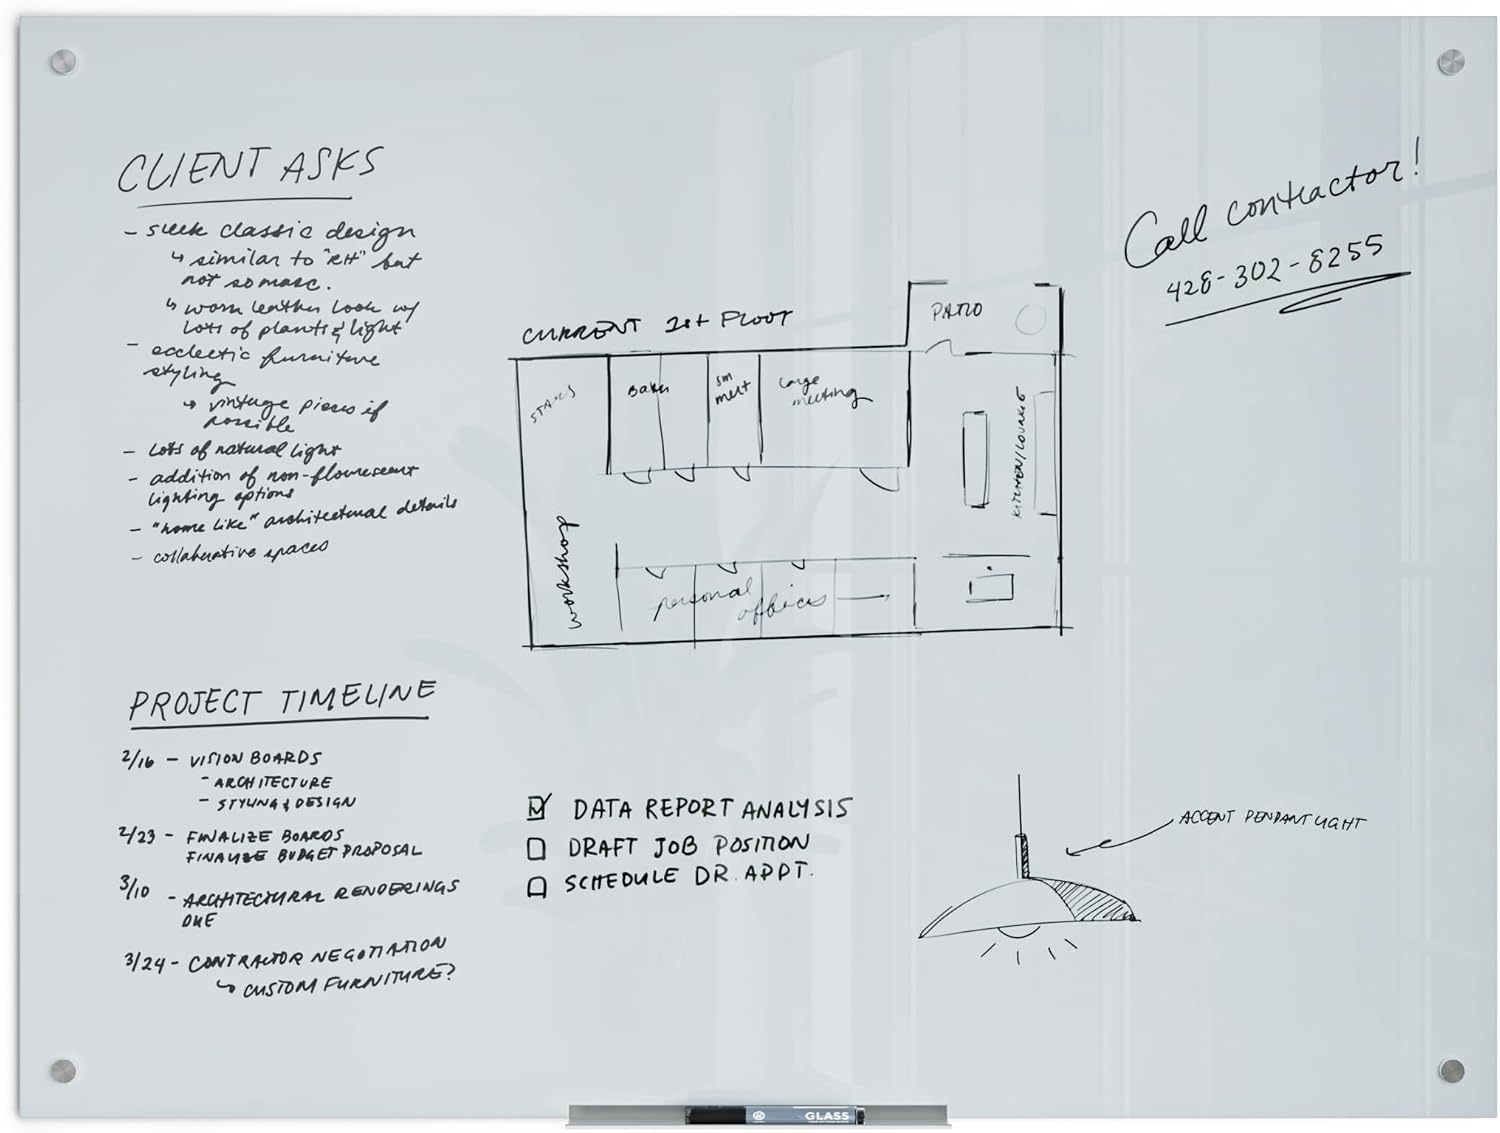 CLIENT ASKS
- sleek classic design
↳ similar to "RH" but
not so masc.
↳ worn leather look w/
lots of plants & light
- ecclectic furniture
styling
↳ vintage pieces if
possible
- lots of natural light
- addition of non-flourescent
lighting options
- "home like" architectural details
- collaborative spaces
Call contractor!
428-302-8255
CURRENT 1st FLOOR
PATIO
STAIRS
sm
meet
large
meeting
KITCHEN/LOUNGE
workshop
personal
offices
PROJECT TIMELINE
2/16 - VISION BOARDS
- ARCHITECTURE
- STYLING & DESIGN
2/23 - FINALIZE BOARDS
FINALIZE BUDGET PROPOSAL
3/10 - ARCHITECTURAL RENDERINGS
DUE
3/24 - CONTRACTOR NEGOTIATION
↳ CUSTOM FURNITURE?
☑ DATA REPORT ANALYSIS
☐ DRAFT JOB POSITION
☐ SCHEDULE DR. APPT.
ACCENT PENDANT LIGHT
GLASS